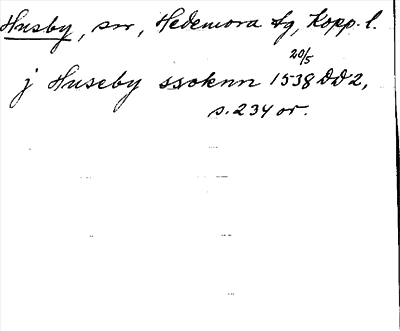 Husby, sn, Hedemora tg, Kopp. l.
20/5
j Huseby ssoknn 1538 DD 2,
s. 234 or.